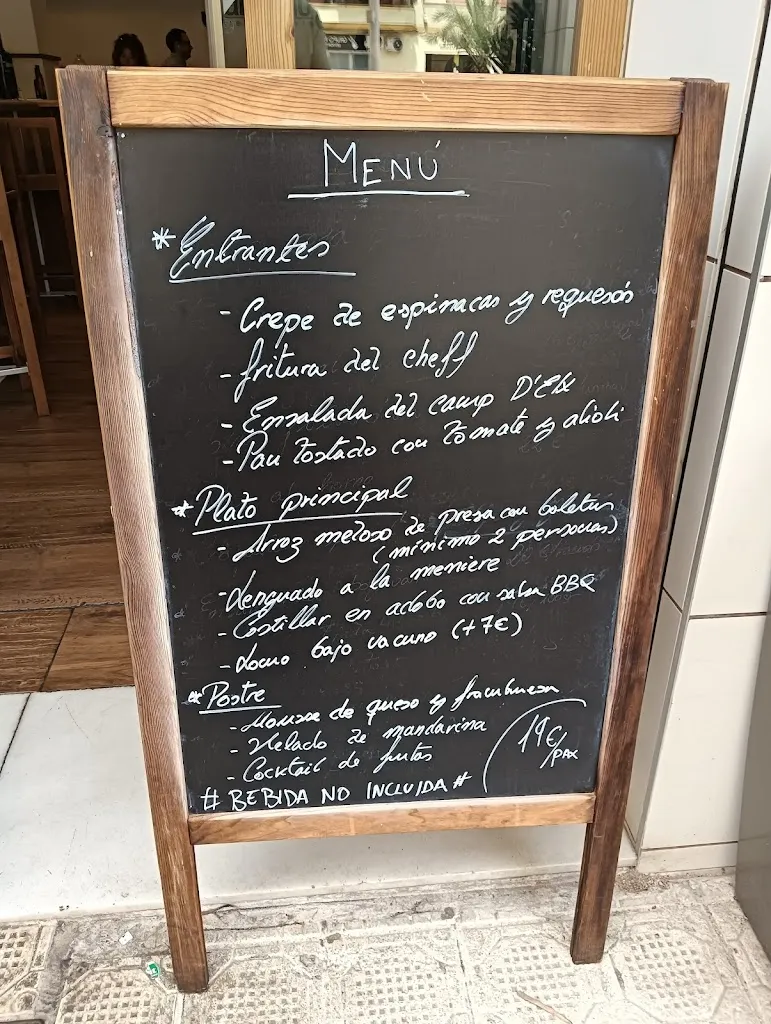 MENÚ
* Entrantes
- Crepe de espinacas y requesón
- fritura del cheff
- Ensalada del camp D'Elx
- Pan tostado con tomate y alioli
* Plato principal
- Arroz meloso de presa con boletus
(mínimo 2 personas)
- Lenguado a la meniere
- Costillar en adobo con salsa BBQ
- Lomo bajo vacuno (+7€)
* Postre
- Mousse de queso y frambuesa
- Helado de mandarina
- Cocktail de frutas
19€/PAX
# BEBIDA NO INCLUIDA #